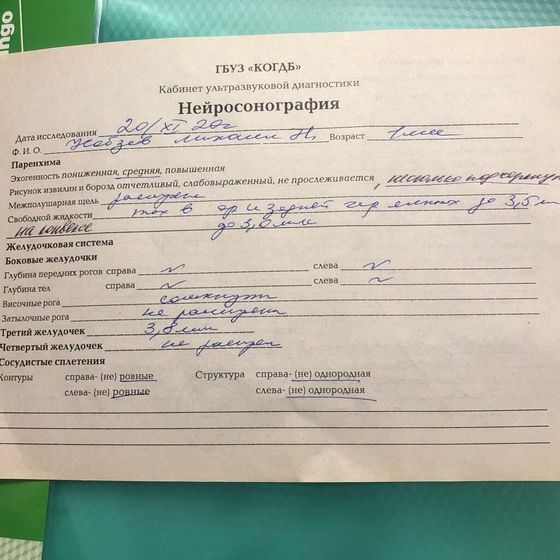 ngo
ГБУЗ «КОГДБ»
Кабинет ультразвуковой диагностики
Нейросонография
Дата исследования 20/XI 20г
Ф. И. О. Михаил Н. Возраст 1 мес
Паренхима
Эхогенность пониженная, средняя, повышенная
Рисунок извилин и борозд отчетливый, слабовыраженный, не прослеживается, несколько подчеркнут
Межполушарная щель расширен
Свободной жидкости в до 3,5 м
на конвексе до 3,0 мм
Желудочковая система
Боковые желудочки
Глубина передних рогов справа N слева N
Глубина тел справа N слева N
Височные рога сомкнуты
Затылочные рога не расширены
Третий желудочек 3,8 мм
Четвертый желудочек не расширен
Сосудистые сплетения
Контуры справа- (не) ровные Структура справа- (не) однородная
слева- (не) ровные слева- (не) однородная